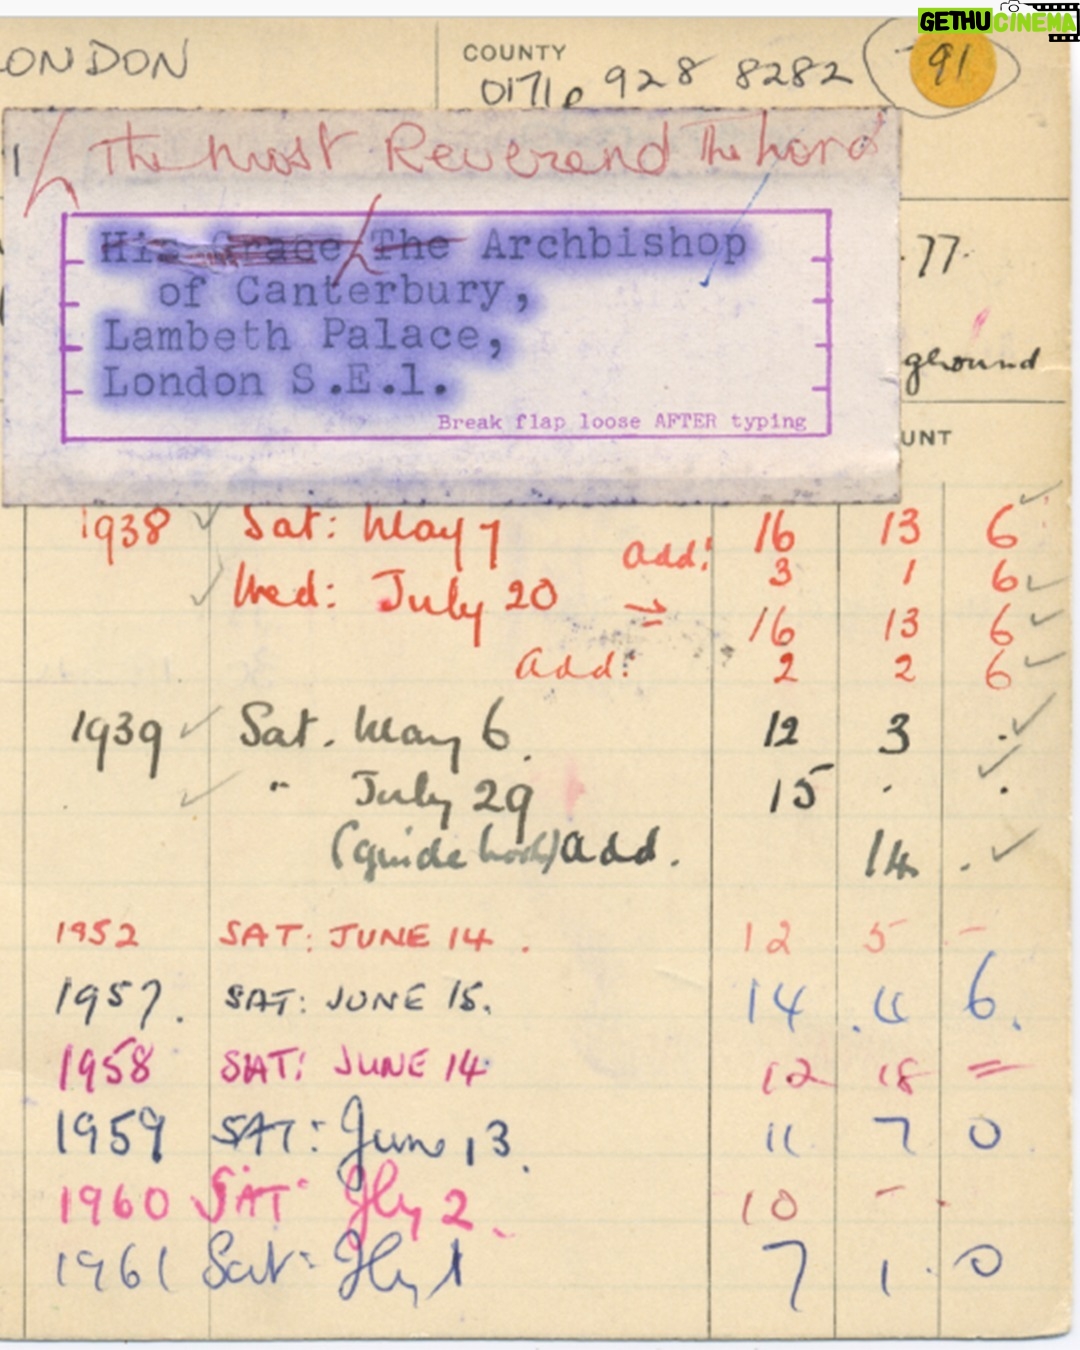 GETHUCINEMA
LONDON COUNTY
01710 928 8282 91
1 The Most Reverend The Lord
His Grace The Archbishop
of Canterbury,
Lambeth Palace,
London S.E.1.
Break flap loose AFTER typing
.77.
ghound
UNT
1938 Sat: May 7 16 13 6
add: 3 1 6
Wed: July 20 16 13 6
Add: 2 2 6
1939 Sat. May 6. 12 3 .
" July 29 15 . .
(guide book) add. 14 .
1952 SAT: JUNE 14. 12 5 -
1957. SAT: JUNE 15. 14 . 4 6.
1958 SAT: JUNE 14 12 18 =
1959 SAT: June 13. 11 7 0
1960 SAT: Jly 2. 10 - -
1961 Sat: Jly 1 7 1. 0